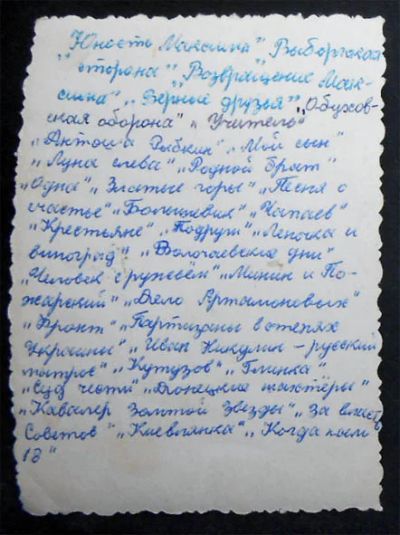 „Юность Максима" „Выборгская
„сторона" „Возвращение Мак-
сима" „Верные друзья" „Обухов-
ская оборона" „Учитель"
„Антоша Рыбкин" „Мой сын"
„Луна слева" „Родной брат"
„Одна" „Златые горы" „Песня о
счастье" „Большевик" „Чапаев"
„Крестьяне" „Подруги" „Леночка и
виноград" „Волочаевские дни"
„Человек с ружьем" „Минин и По-
жарский" „Дело Артамоновых"
„Фронт" „Партизаны в степях
Украины" „Иван Никулин - русский
матрос" „Кутузов" „Глинка"
„Суд чести" „Донецкие шахтёры"
„Кавалер Золотой Звезды" „За власть
Советов" „Киевлянка" „Когда поют